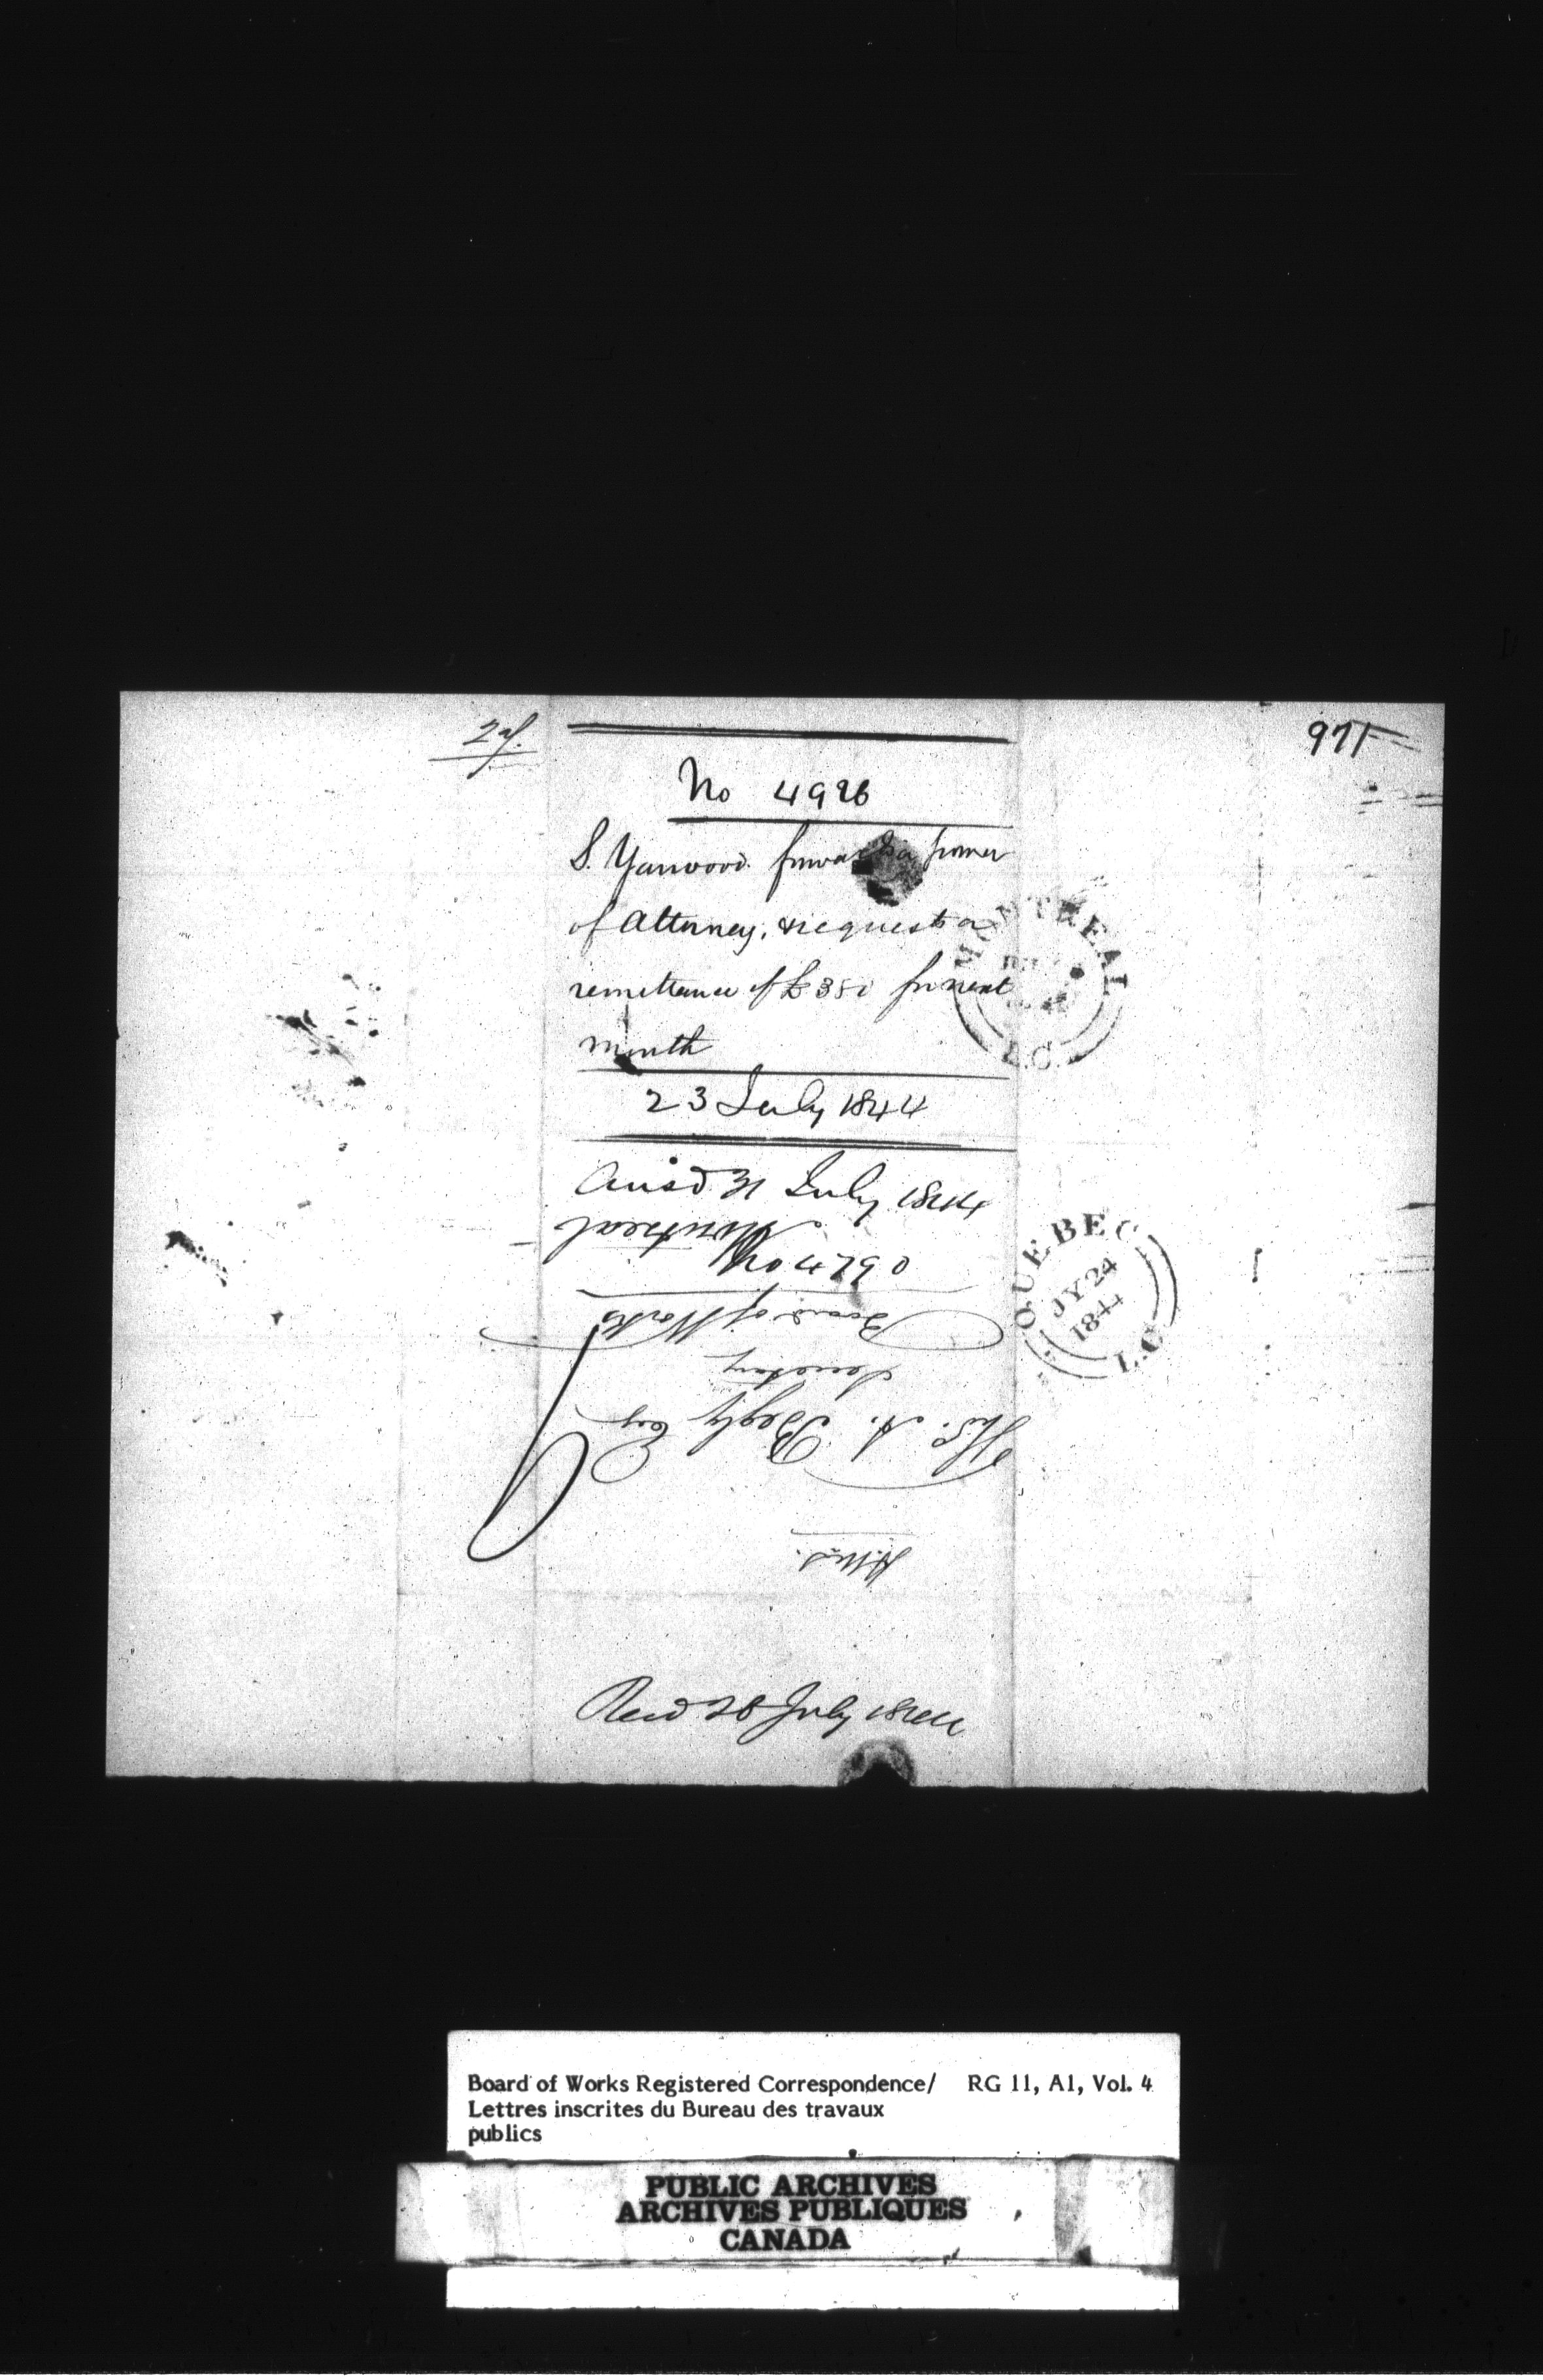 971
No 4926
S. Yarwood. forwards a power
of Attorney, & requests a
remittance of £ 380 for next
month
23 July 1844
Ansd 31 July 1844
No 4790
MONTREAL
L.C.
QUEBEC
JY 24
1844
L.C
H.M.S.
Thos. A. Begly Esq
Secretary
Board of Works
Montreal
Recd 26 July 1844
Board of Works Registered Correspondence/ RG 11, A1, Vol. 4
Lettres inscrites du Bureau des travaux
publics
PUBLIC ARCHIVES
ARCHIVES PUBLIQUES
CANADA